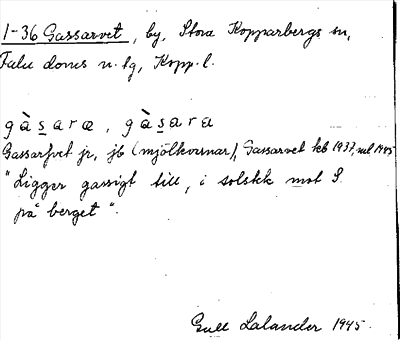 1-36 Gassarvet, by, Stora Kopparbergs sn,
Falu doms n. lg, Kopp. l.
gàsaræ, gàsara
Gassarfvet jr, jb (mjölkvarnar), Gassarvet kb 1937, rul 1945
"Ligger gassigt till, i solstk mot S
på berget".
Gull Lalander 1945.